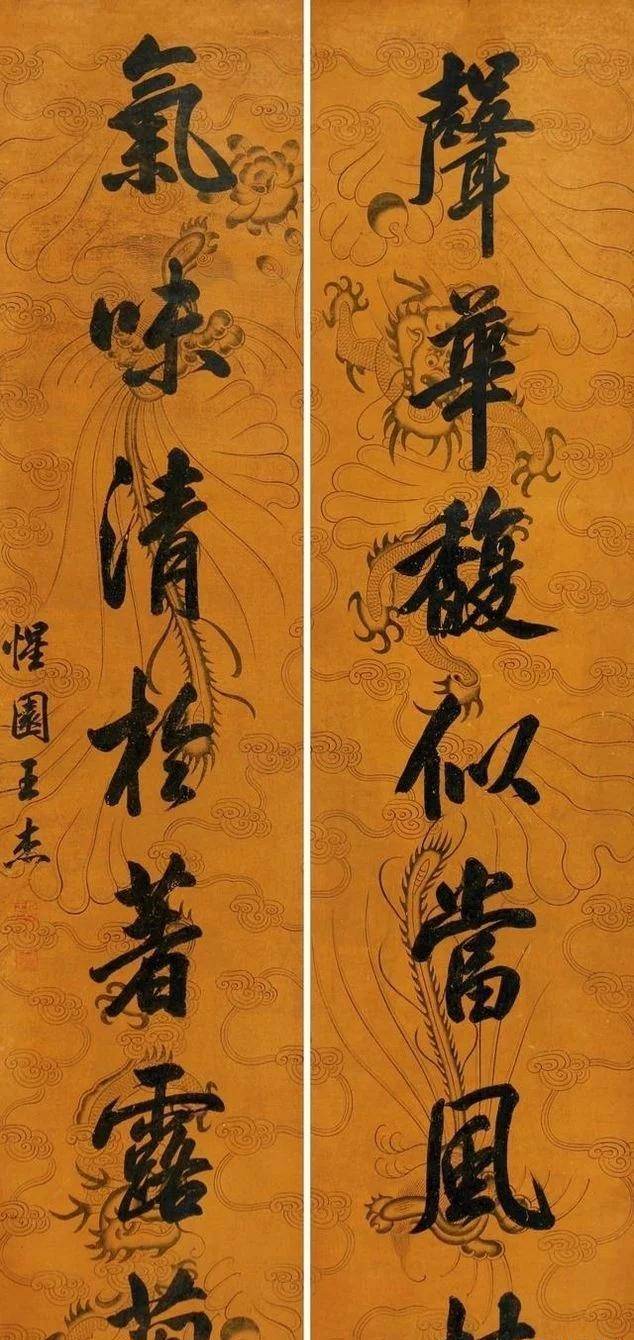 聲華馥似當風
氣味清於著露菊
惺園王杰